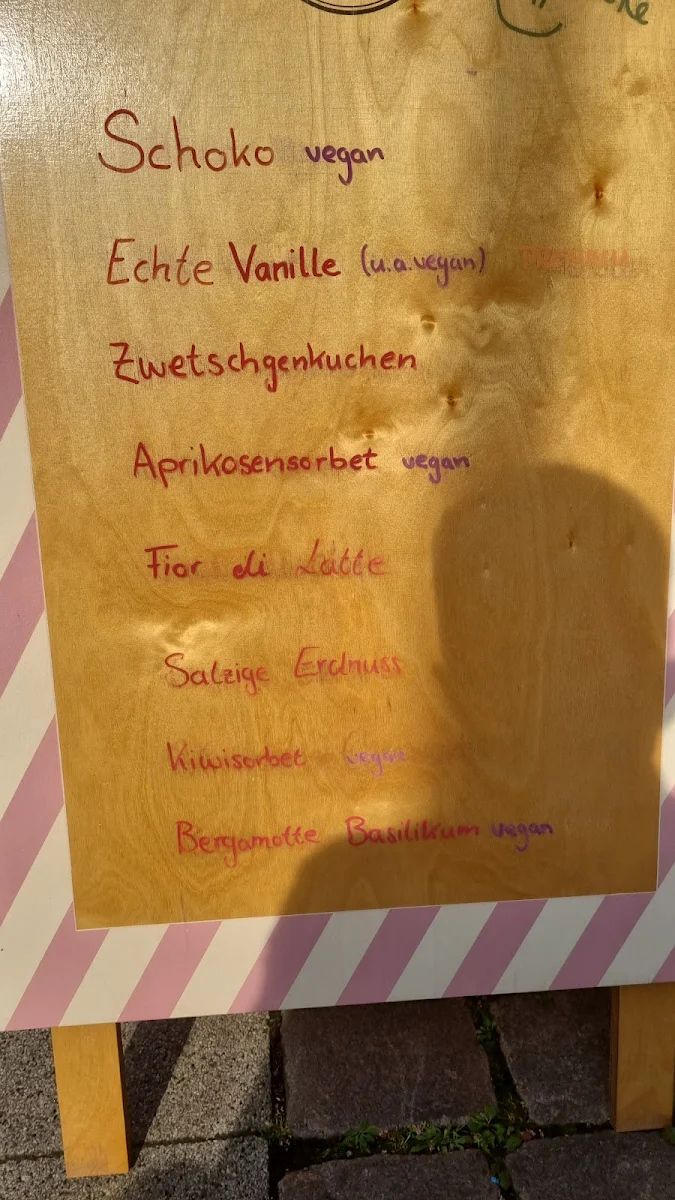 Schoko vegan
Echte Vanille (u.a.vegan)
Zwetschgenkuchen
Aprikosensorbet vegan
Fior di Latte
Salzige Erdnuss
Kiwisorbet vegan
Bergamotte Basilikum vegan